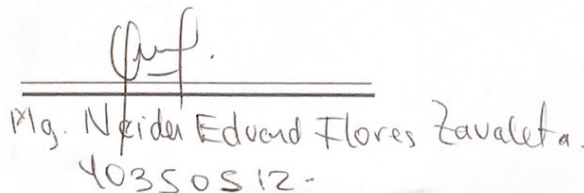 Mg. Neider Eduard Flores Zavaleta.
40350512-